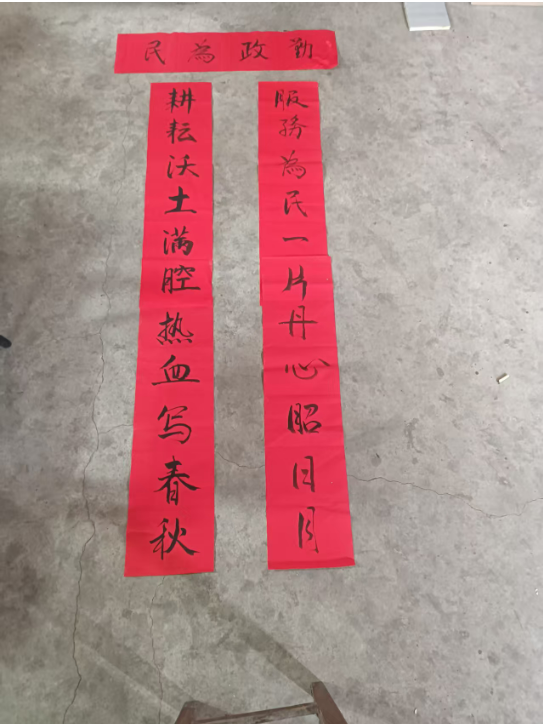 勤政為民
服務為民一片丹心昭日月
耕耘沃土满腔热血写春秋